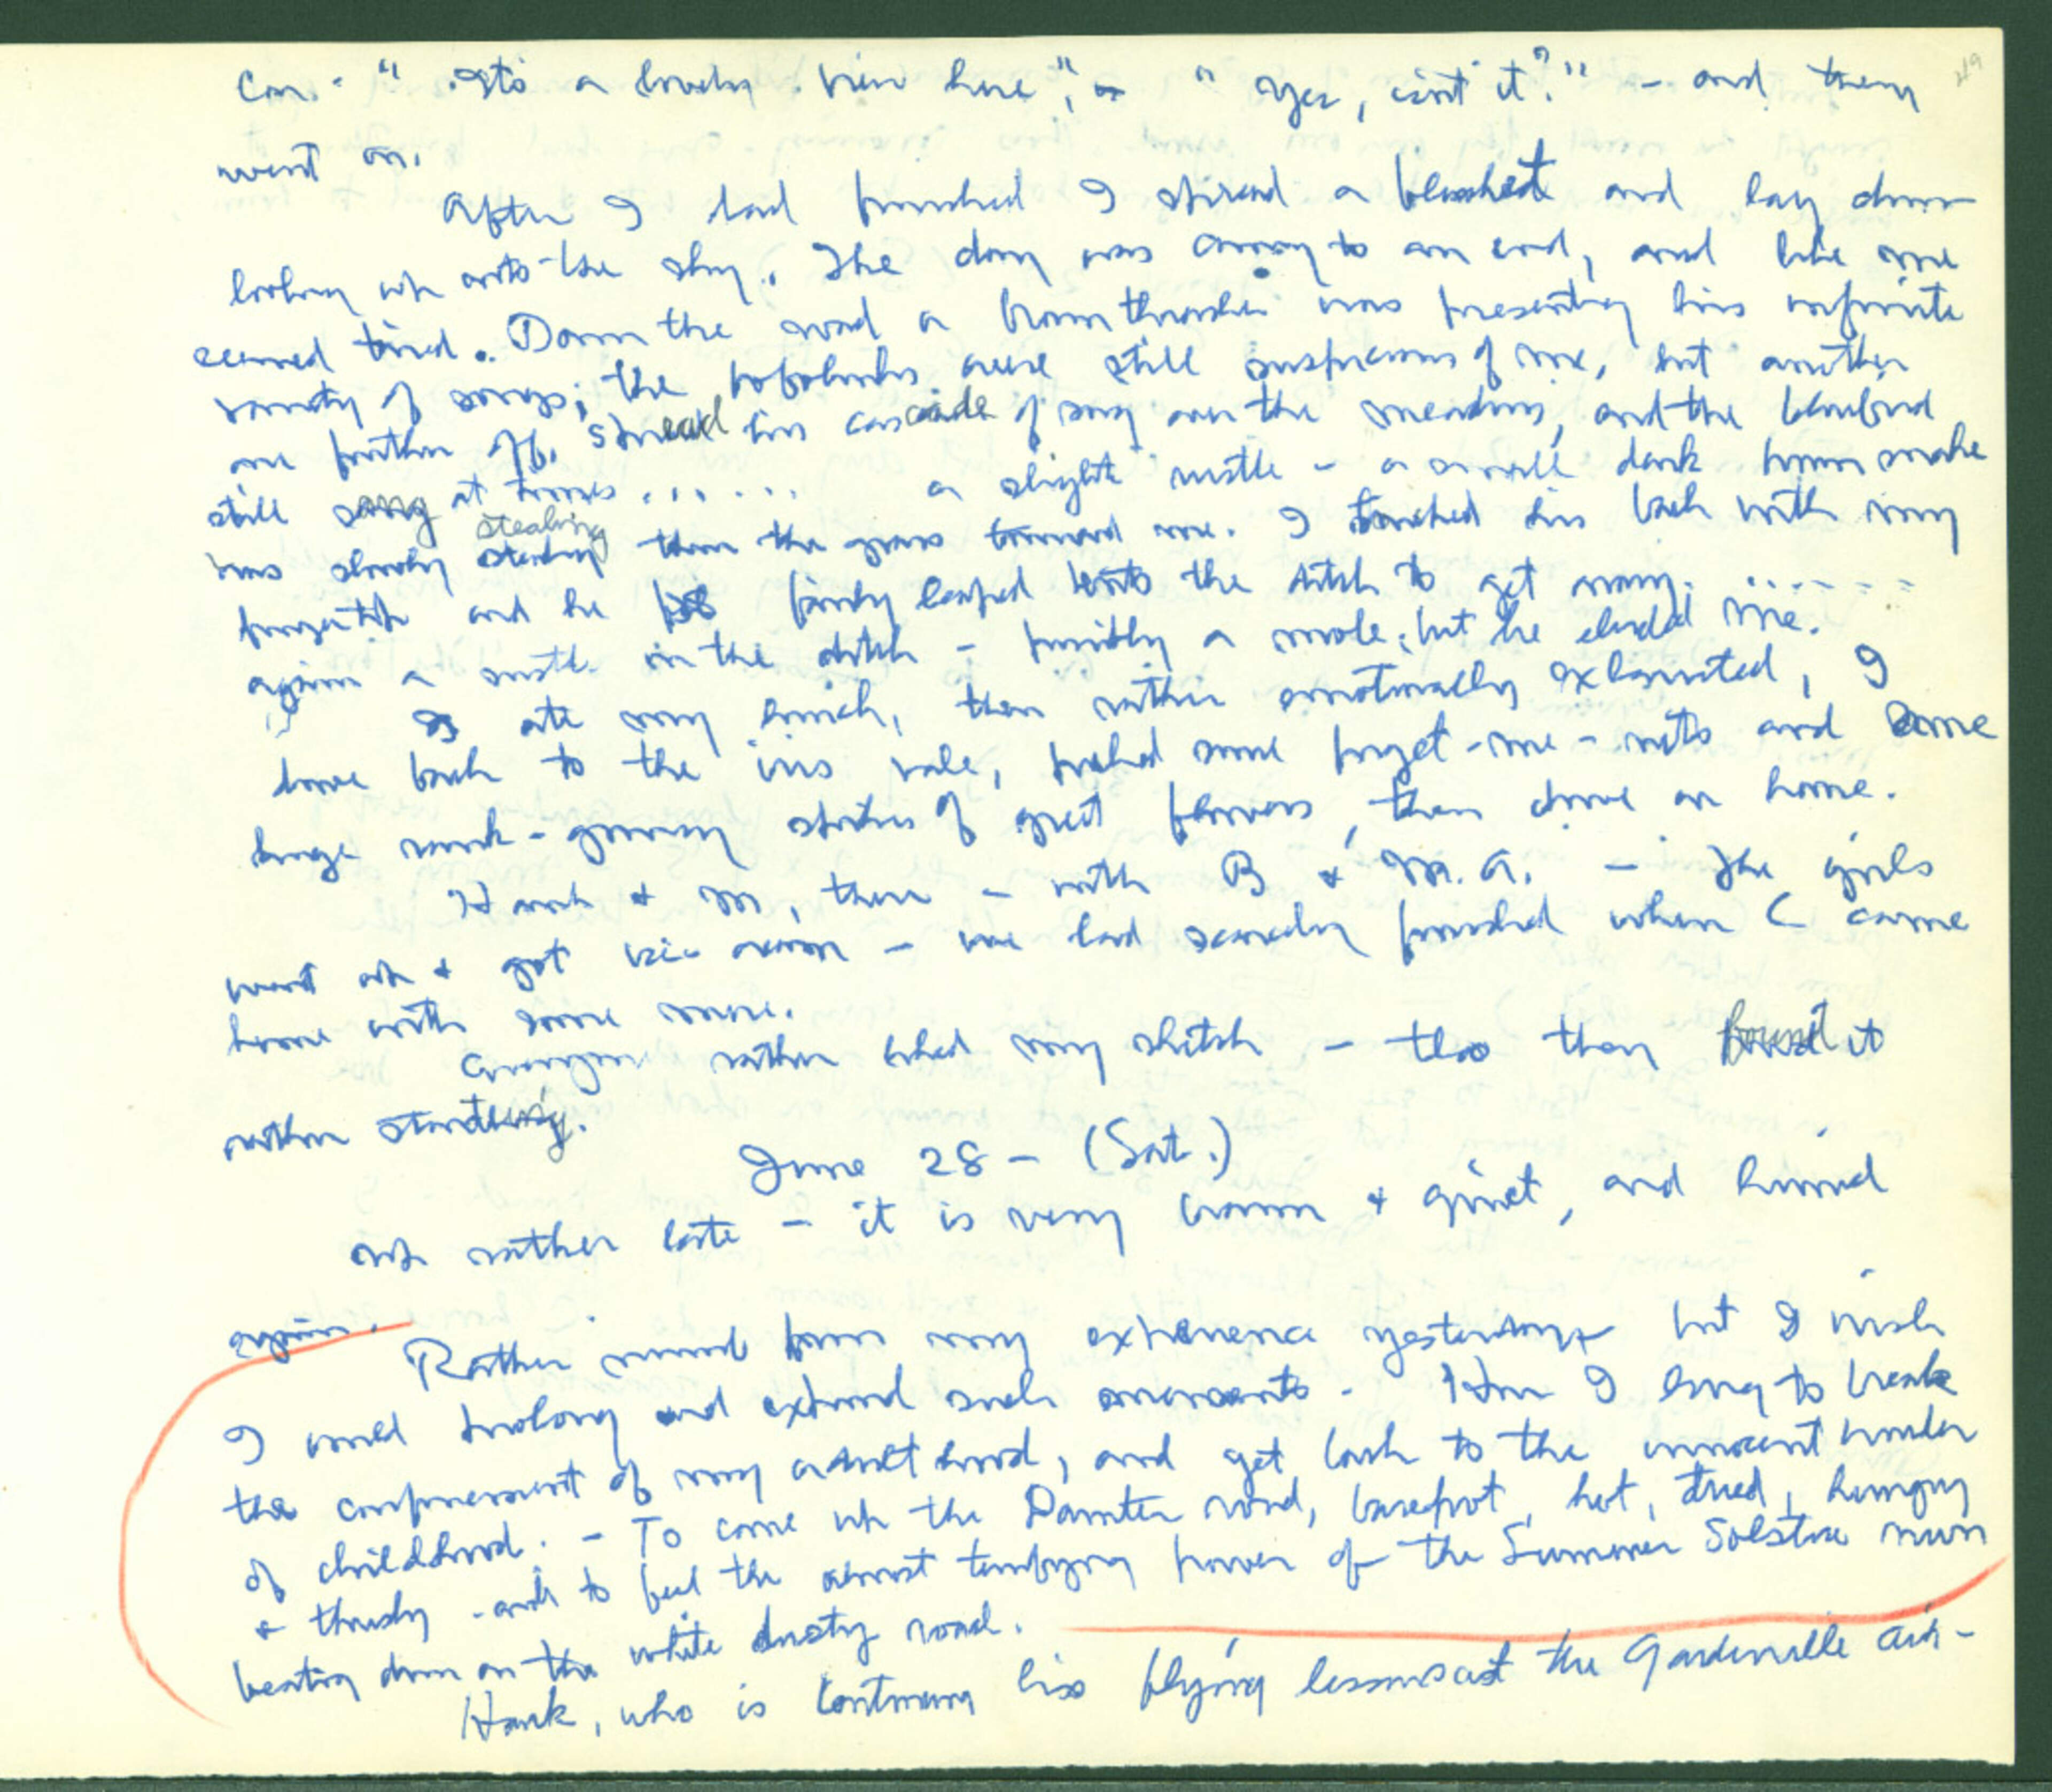 Can. - " Its a lovely view here", - " Yes, isn't it?" - and they
went on.
After I had finished I spread a blanket and lay down
looking up into the sky. The day was coming to an end, and like me
seemed tired. Down the road a brown thrasher was presenting his infinite
variety of songs; the bobolinks were still suspicious of me, but another
one further off, spread his cascade of song over the meadows, and the bluebird
still sang at times ...... a slight rustle - a small dark brown snake
was slowly stealing stealing thru the grass toward me. I touched his back with my
fingertip and he fairly leaped into the ditch to get away. ......
again a rustle in the ditch - possibly a mole, but he eluded me.
I ate my lunch, then rather emotionally exhausted, I
drove back to the iris vale, picked some forget-me-nots and some
large rank-growing spikes of flowers, then drove on home.
Hank & M, there - with B & M.A. - The girls
went up & got ice cream - we had scarcely finished when C came
home with some more.
Everyone rather liked my sketch - tho they found it
rather startling.
June 28 - (Sat.)
up rather late - it is very warm & quiet, and humid
again.
Rather numb from my experience yesterday but I wish
I could prolong and extend such moments - How I long to break
the confinement of my adult hood, and get back to the innocent wonder
of childhood. - To come up the Painter road, barefoot, hot, tired, hungry
& thirsty - and to feel the almost terrifying power of the Summer Solstice sun
beating down on the white dusty road.
Hank, who is continuing his flying lessons at the Gardenville air-